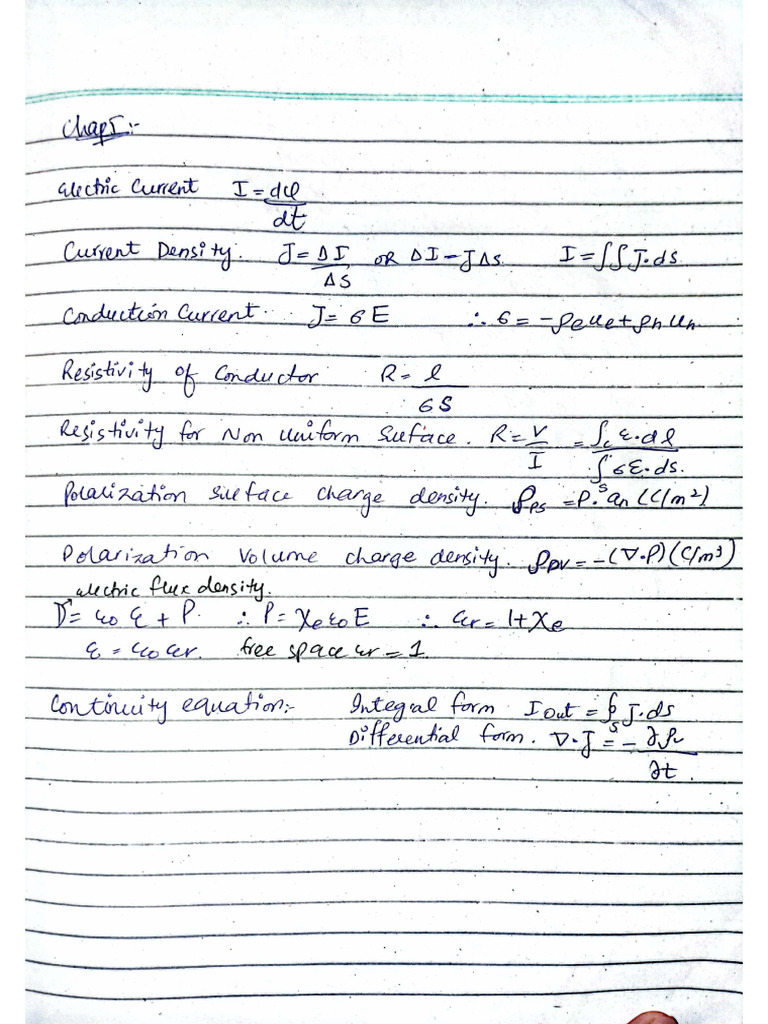 Chap5:-
electric Current I = dQ/dt
Current Density. J = ΔI/ΔS OR ΔI = JΔS I = ∫∫ J·ds
Conduction Current. J = σE ∴ σ = -ρeue + ρhuh
Resistivity of Conductor R = l/σS
Resistivity for Non uniform surface. R = V/I = ∫c ε·dl / ∫s σε·ds.
Polarization surface charge density. ρps = P·an (C/m²)
Polarization volume charge density. ρpv = -(∇·P) (C/m³)
electric flux density.
D = ε0 ε + P. ∴ P = χeε0E ∴ εr = 1+χe
ε = ε0 εr. free space εr = 1.
Continuity equation:- Integral form I out = ∮s J·ds
Differential form. ∇·J = -∂ρv/∂t